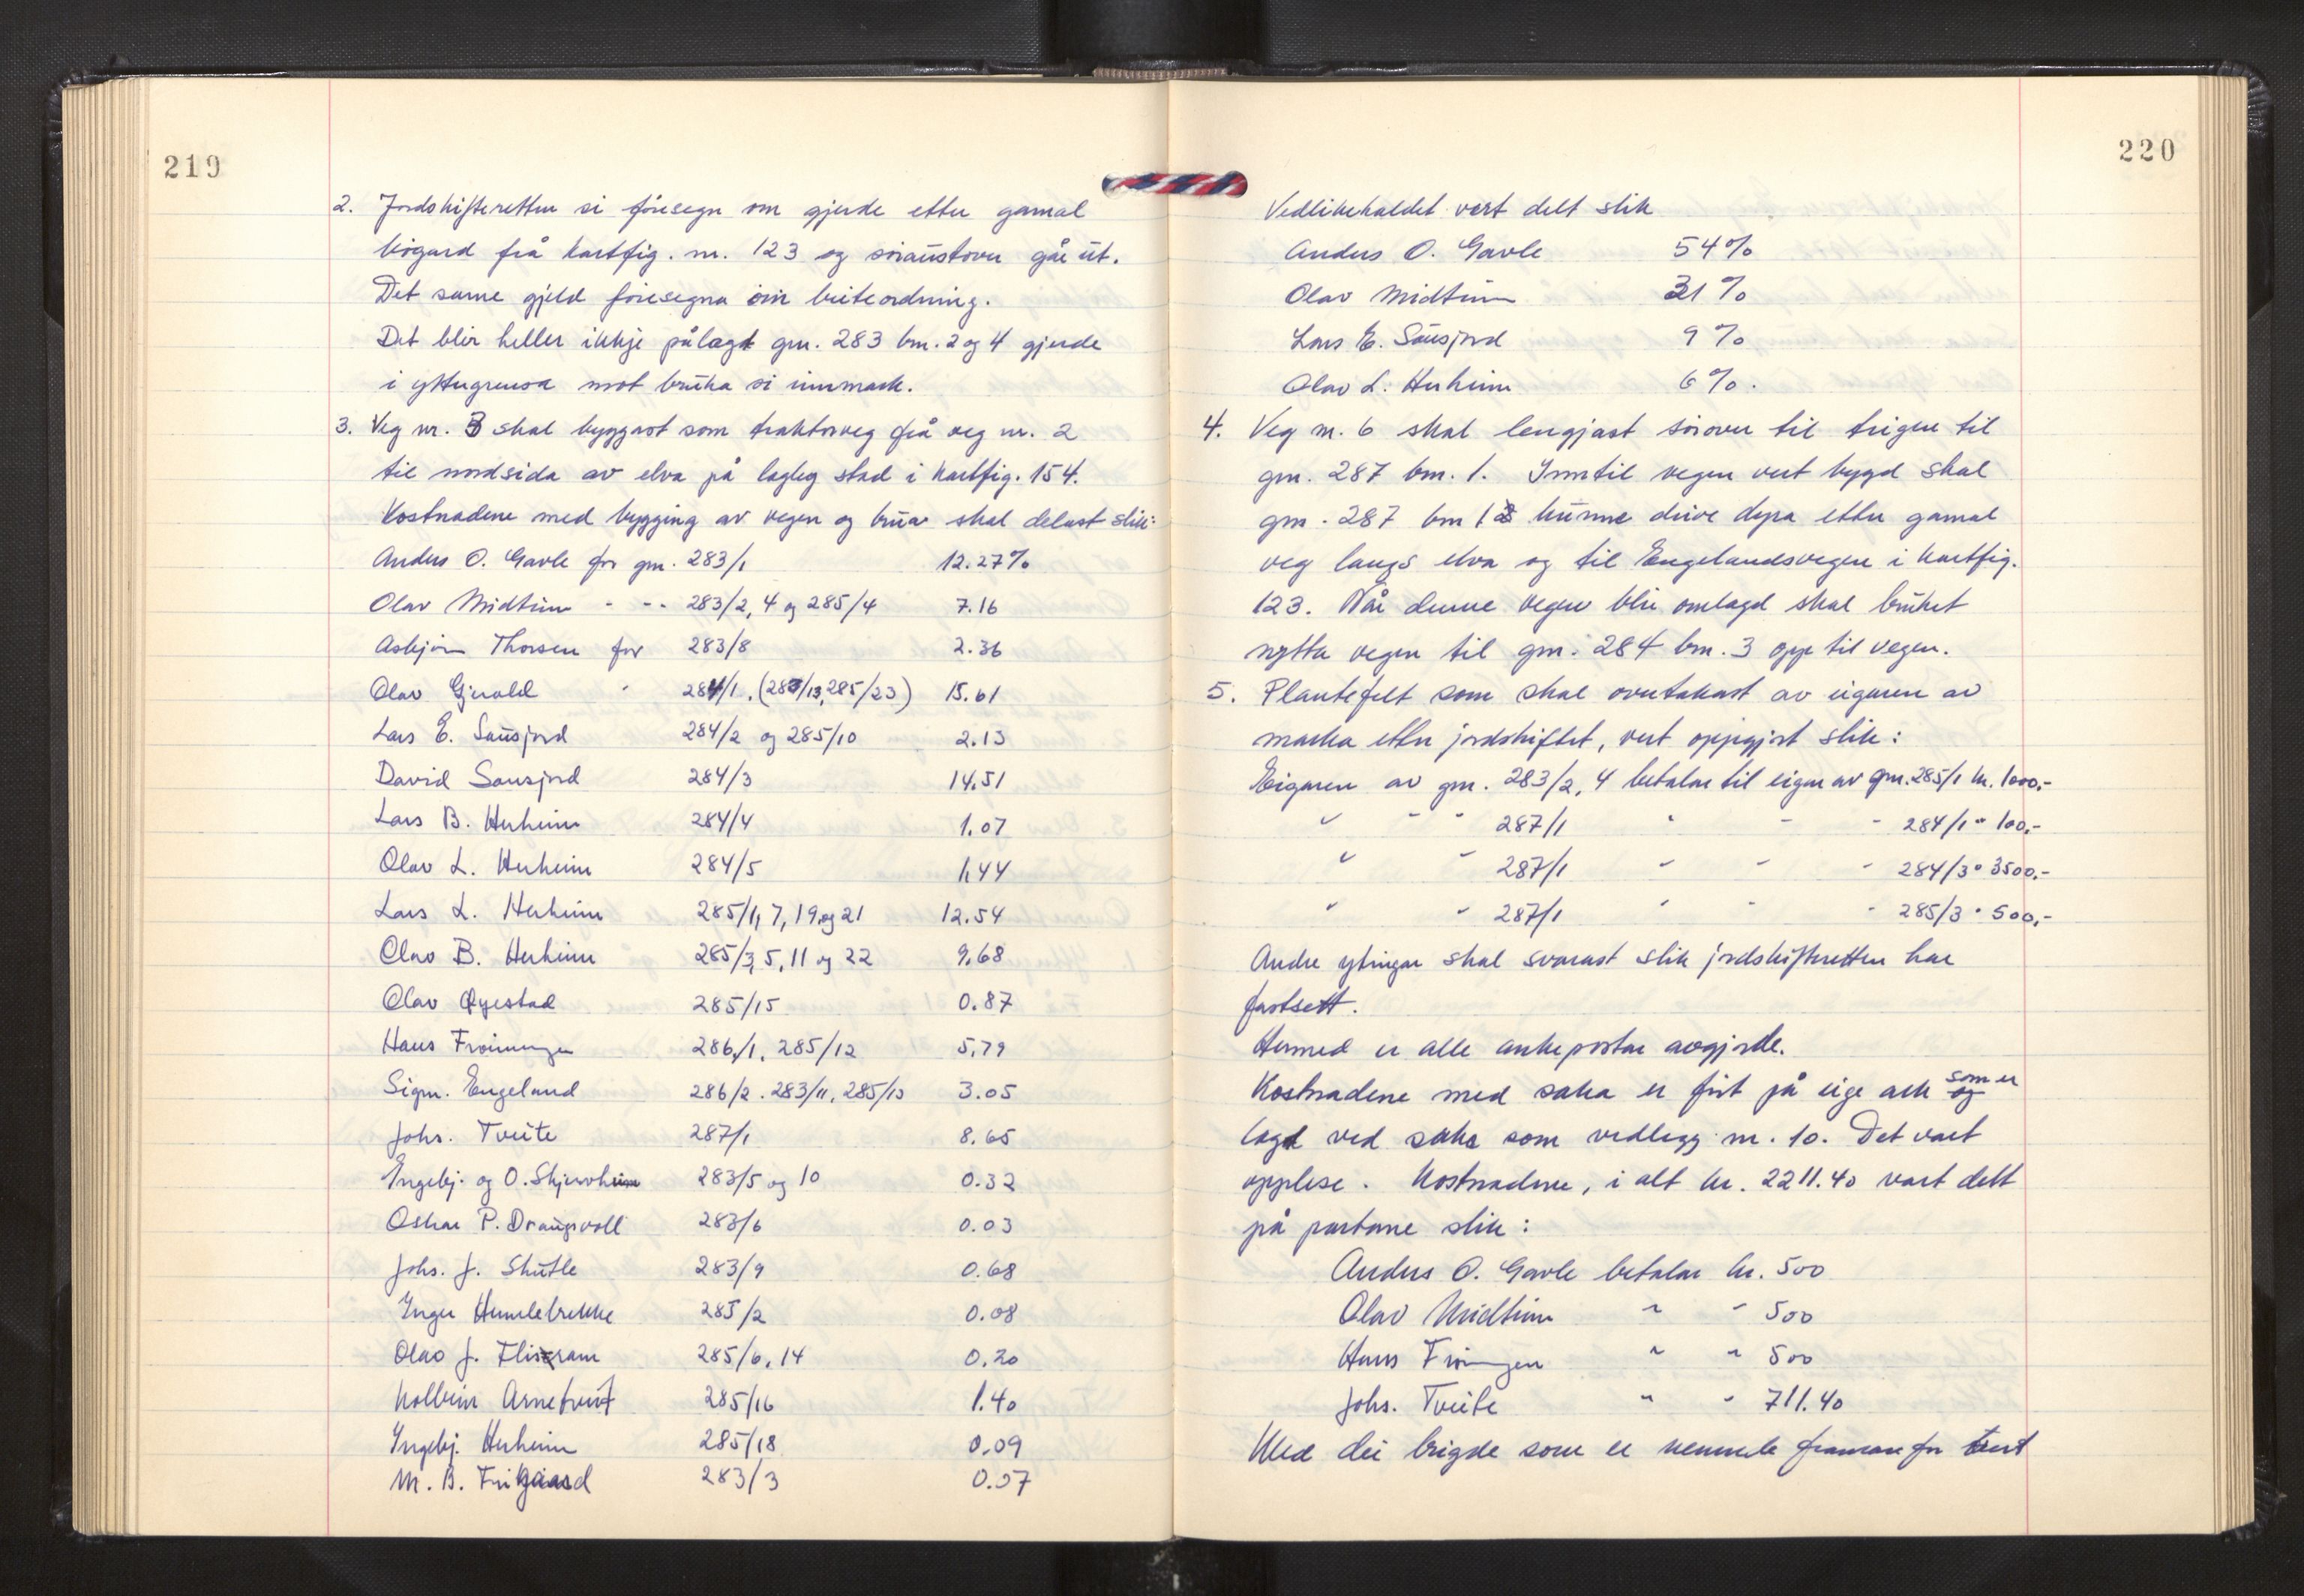 219
2. Jordskifteretten si føresegn om gjerde etter gamal
bøgard frå kartfig. nr. 123 og søraustover går ut.
Det same gjeld føresegna om beiteordning.
Det blir heller ikkje pålagt gnr. 283 bnr. 2 og 4 gjerde
i yttergrensa mot bruka si innmark.
3. Veg nr. 3 skal byggast som traktorveg frå veg nr. 2
til nordsida av elva på lagleg stad i kartfig. 154.
Kostnadene med bygging av vegen og brua skal delast slik:
Anders O. Gavle for gnr. 283/1 12.27%
Olav Midttun - -- 283/2, 4 og 285/4 7.16
Asbjørn Thorsen for 283/8 2.36
Olav Gjerald " 284/1, (283/13, 285/23) 15.61
Lars E. Sausjord 284/2 og 285/10 2.13
David Sausjord 284/3 14.51
Lars B. Herheim 284/4 1.07
Olav L. Herheim 284/5 1.44
Lars L. Herheim 285/1, 7, 19 og 21 12.54
Olav B. Herheim 285/3, 5, 11 og 22 9.68
Olav Øyestad 285/15 0.87
Hans Frøiningen 286/1, 285/12 5.79
Sigm. Engeland 286/2. 283/11, 285/13 3.05
Johs. Tveite 287/1 8.65
Ingebj. og O. Skjervheim 283/5 og 10 0.32
Oskar P. Draugsvoll 283/6 0.03
Johs. J. Skutle 283/9 0.68
Inger Humlebrekke 285/2 0.08
Olav J. 285/6, 14 0.20
Kolbein Arnetveit 285/16 1.40
Ingebj. Herheim 285/18 0.09
M. B. 283/3 0.07
220
Vedlikehaldet vert delt slik
Anders O. Gavle 54%
Olav Midttun 31%
Lars E. Sausjord 9%
Olav L. Herheim 6%.
4. Veg nr. 6 skal lengjast sørover til teigen til
gnr. 287 bnr. 1. Inntil vegen vert bygd skal
gnr. 287 bnr 1 kunne drive dyra etter gamal
veg langs elva og til Engelandsvegen i kartfig.
123. Når denne vegen blir omlagd skal bruket
nytta vegen til gnr. 284 bnr. 3 opp til vegen.
5. Plantefelt som skal overtakast av eigaren av
marka etter jordskiftet, vert oppgjort slik:
Eigaren av gnr. 283/2, 4 betalar til eigar av gnr. 285/1 kr. 1000,-
" " " 287/1 " - " 284/1 " 100,-
" " 287/1 " " " 284/3 " 3500,-
" " 287/1 " " " 285/3 " 500,-
Andre ytingar skal svarast slik jordskifteretten har
fastsett.
Hermed er alle ankepostar avgjorde.
Kostnadene med saka er ført på eige ark og som er
lagt ved saka som vedlegg nr. 10. Det vart
opplese. Kostnadene, i alt kr. 2211.40 vart delt
på partane slik:
Anders O. Gavle betalar kr. 500
Olav Midttun " " 500
Hans Frøiningen " " 500
Johs. Tveite " " 711.40
Med dei brigde som er nemnde framanfor